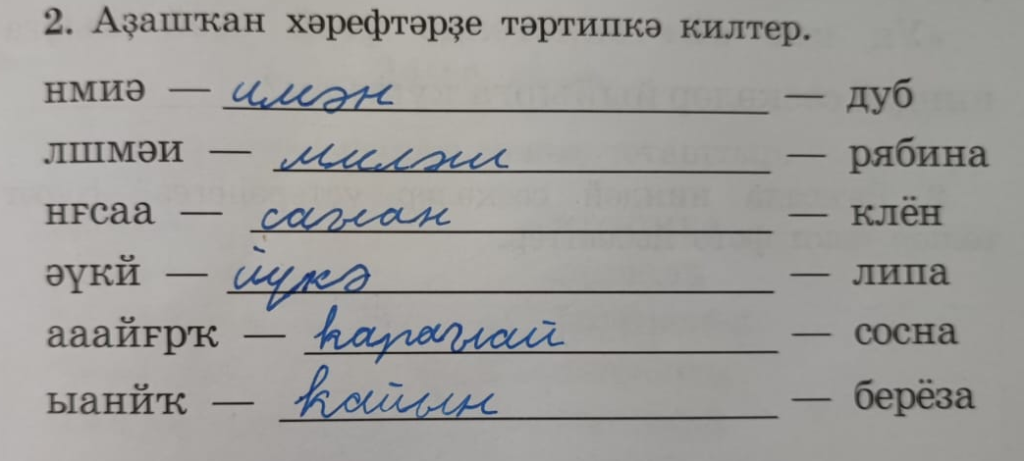 2. Аҙашҡан хәрефтәрҙе тәртипкә килтер.
нмиә — имән — дуб
лшмәи — миләш — рябина
нғсаа — саған — клён
әүкй — йүкә — липа
ааайғрҡ — ҡарағай — сосна
ыанйҡ — ҡайын — берёза